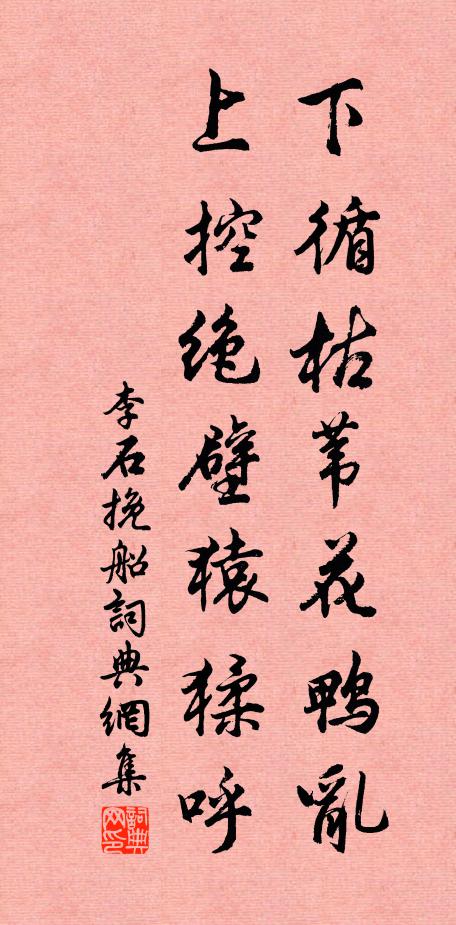 下循枯苇花鴨亂
上控绝壁猿猱呼
李石挽船詞典網集
詞典網印